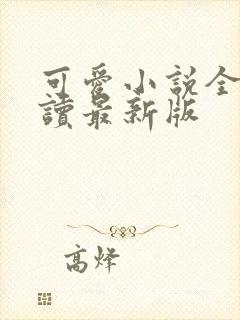 可愛小說全
讀最新版
高烽